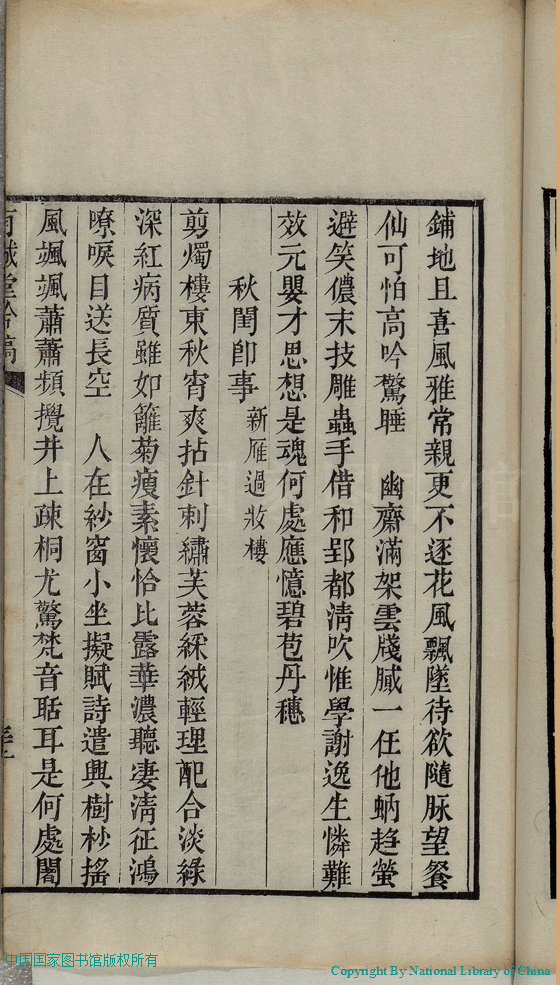 鋪地且喜風雅常親更不逐花風飄墜待欲隨脉望餐
仙可怕高吟驚睡　幽齋滿架雲牋膩一任他蚋趋螢
避笑儂末技雕蟲手借和郢都清吹惟學謝逸生憐難
效元嬰才思想是魂何處應憶碧苞丹穗
秋閨卽事　新雁過妝樓
剪燭樓東秋宵爽拈針刺繡芙蓉綵絨輕理配合淡綠
深紅病質雖如籬菊瘦素懷恰比露華濃聽凄清征鴻
嘹唳目送長空　人在紗窗小坐擬賦詩遣興樹杪搖
風颯颯蕭蕭頻攪井上疎桐尤驚梵音聒耳是何處闇
中国国家图书馆版权所有
Copyright By National Library of China